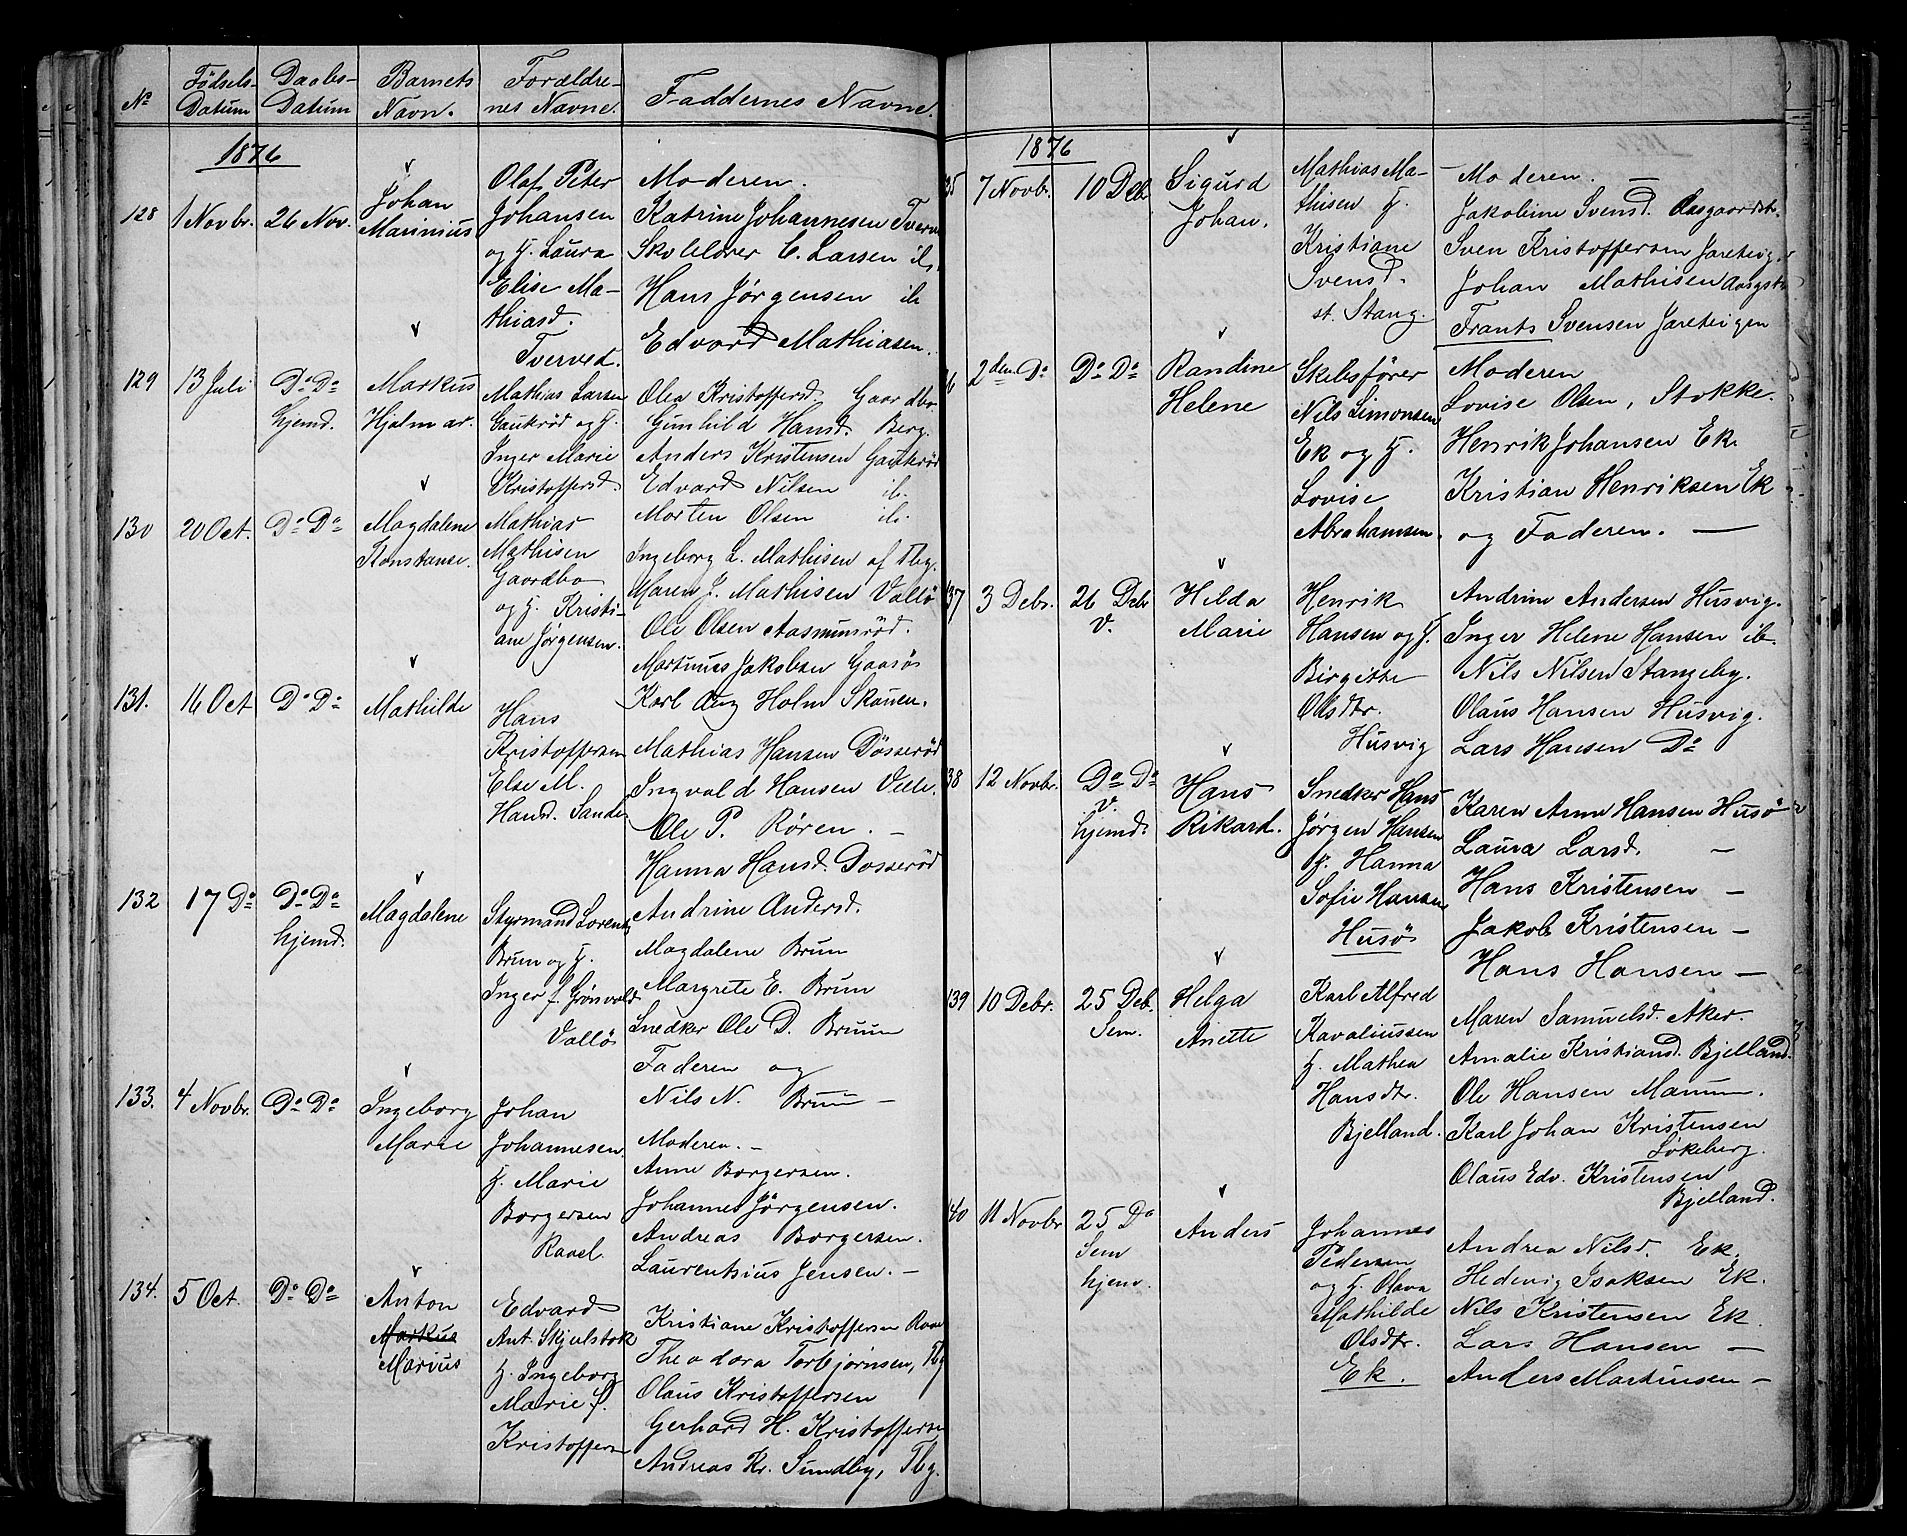 No
Fødsels-
Datum
Daabs-
Datum
Barnets
Navn.
Forældre-
nes Navne.
Faddernes Navne.
1876
128
1 Novbr.
26 Nov.
Johan
Marinius
Olaf Peter
Johansen
og H. Laura
Elise Ma-
thiasd.
Tverved.
Moderen.
Katrine Johannesen Tverv
Skolelærer C. Larsen ib.
Hans Jørgensen ib
Edvard Mathiasen.
129
13 Juli
Do Do
hjemd.
Markus
Hjalmar.
Mathias Larsen
Gaukrød og H.
Inger Marie
Kristoffersd.
Olea Kristoffersd. Gaardbo
Gunhild Hansd. Berg.
Anders Kristensen Gaukerød
Edvard Nilsen ib.
Morten Olsen ib.
130
20 Oct.
Do Do
Magdalene
Konstanse.
Mathias
Mathisen
Gaardbo
og H. Kristi-
ane Jørgensen.
Ingeborg L. Mathisen af Tbg.
Maren J. Mathisen Vallö
Ole Olsen Aasmunrød.
Martinius Jakobsen Gaasø
Karl Aug Holm Skauen.
131.
16 Oct
Do Do
Mathilde
Hans
Kristoffersen
Else M.
Hansd. Sande
Mathias Hansen Døsserød
Ingvald Hansen
Ole P. Røren. —
Hanna Hansd. Dosserød
132
17 Do
Do Do
hjemd.
Magdalene
Styrmand Lorents
Brun og H.
Inger f. Grönvold
Vallö
Andrine Andersd.
Magdalene Brun
Margrete E. Brun
Snedker Ole D. Bruun
Faderen og
Nils N. Bruun —
133.
4 Novbr.
Do Do
Ingeborg
Marie
Johan
Johannesen
H. Marie
Borgersen
Ravel.
Moderen. —
Anne Borgersen.
Johannes Jørgensen.
Andreas Borgersen.
Laurentsius Jensen. —
134.
5 Oct.
Do Do
Anton
Markus
Marius
Edvard
Ant. Skjelstok
H. Ingeborg
Marie f.
Kristoffersen
Kristiane Kristoffersen
Theodora Torbjørnsen, Tbg
Olaus Kristoffersen
Gerhard H. Kristoffersen
Andreas Kr. Sundby, Tbg.
1876
35
7 Novbr.
10 Deb
Sigurd
Johan.
Mathias Ma-
thisen H.
Kristiane
Svensd.
st. Stang.
— Moderen. —
Jakobine Svensd. Aasgaardstr.
Sven Kristoffersen Jareteig.
Johan Mathisen Aasgstr
Frants Svensen Jareteigen
36
2den Do
Do Do
Randine
Helene
Skibsfører
Nils Simonsen
Ek og H.
Lovise
Abrahamsen.
Moderen
Lovise Olsen, Stokke.
Henrik Johansen Ek.
Kristian Henriksen Ek
og Faderen. —
137
3 Debr.
26 Debr
V.
Hilda
Marie
Henrik
Hansen og H.
Birgitte
Olsdtr.
Husvig
Andrine Andersen Husvig.
Inger Helene Hansen ib.
Nils Nilsen Stangeby.
Olaus Hansen Husvig.
Lars Hansen Do
38
12 Novbr.
Do Do
V.
hjemd.
Hans
Rikard.
Snedker Hans
Jørgen Hansen
H. Hanna
Sofie Hansen
Husö
Karen Anne Hansen Husö
Laura Larsd. —
Hans Kristensen —
Jakob Kristensen —
Hans Hansen —
139
10 Debr.
25 Deb.
Sem.
Helga
Anette
Karl Alfred
Kavaliussen
H. Mathea
Hansdtr.
Bjelland.
Maren Samuelsd. Aker.
Amalie Kristiansd. Bjelland.
Ole Hansen Manum.
Karl Johan Kristensen
Løkeberg.
Olaus Edv. Kristensen
Bjelland.
40
11 Novbr
25 Do
Sem
hjem.
Anders
Johannes
Pedersen
og H. Olava
Mathilde
Olsdtr.
Ek.
Andrea Nilsd. Ek.
Hedevig Isaksen Ek.
Nils Kristensen Ek.
Lars Hansen —
Anders Martinsen —